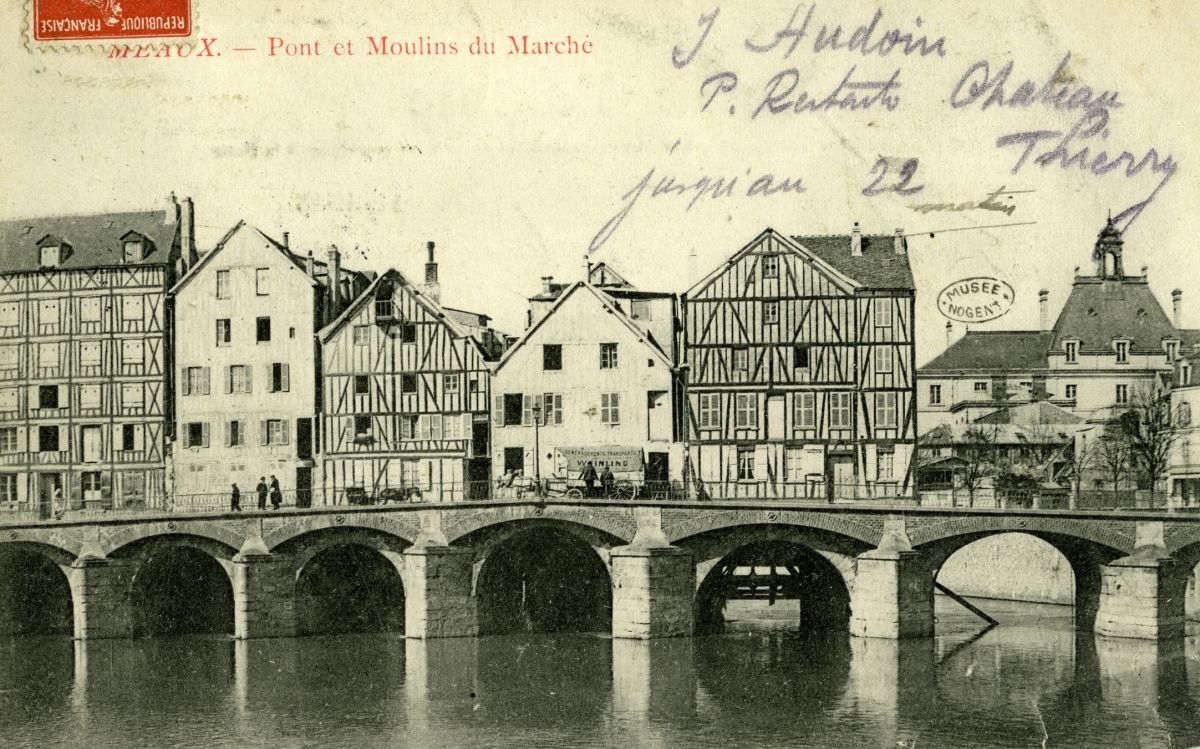 REPUBLIQUE FRANÇAISE
MEAUX. — Pont et Moulins du Marché
J Audoin
P. Restante Chateau
Thierry
jusqu'au 22
matin
MUSÉE
NOGENT
DEMENAGEMENTS-TRANSPORTS